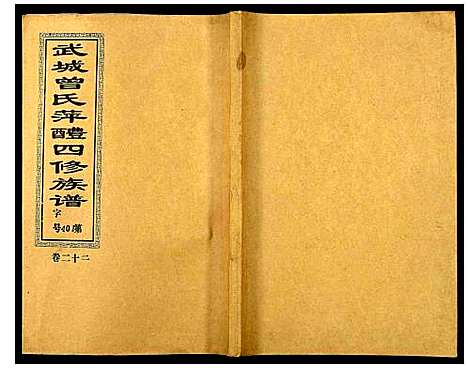 武城曾氏萍醴四修族谱
字
第40号
卷二十二